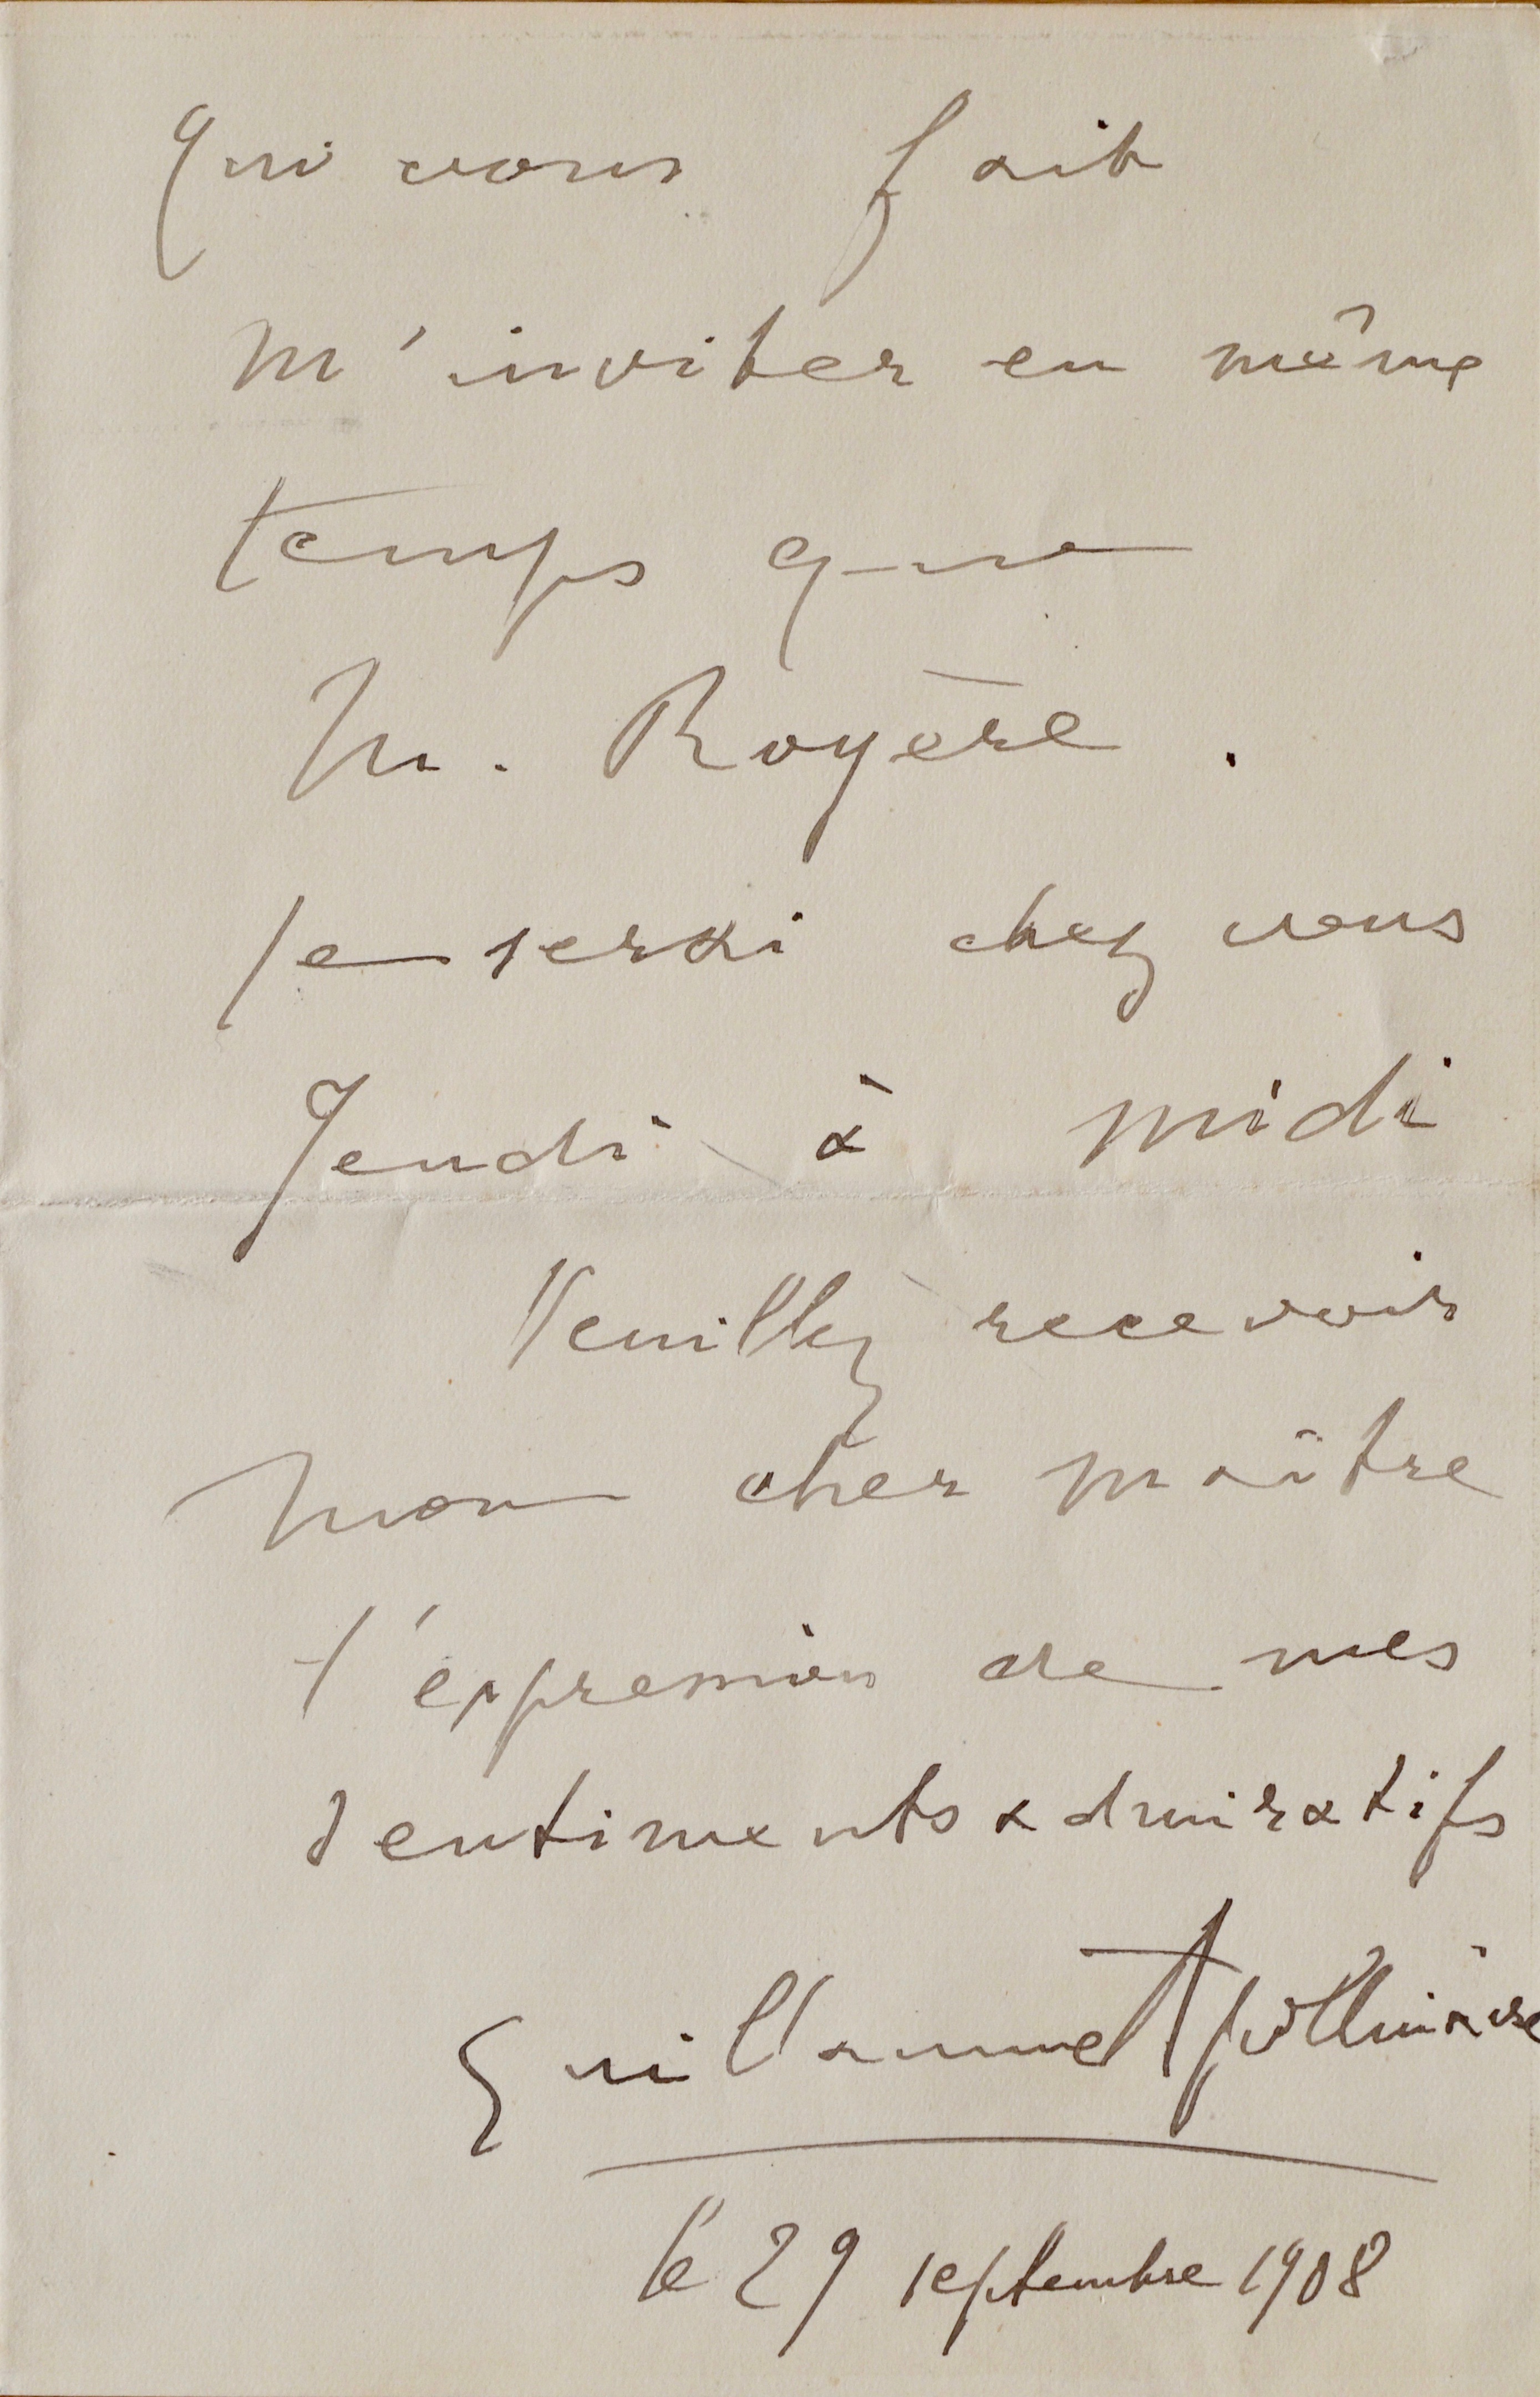 qui vous fait
m'inviter en même
temps que
M. Royère.
Je serai chez vous
Jeudi à midi
Veuillez recevoir
mon cher maître
l'expression de mes
sentiments admiratifs
Guillaume Apollinaire
le 29 septembre 1908